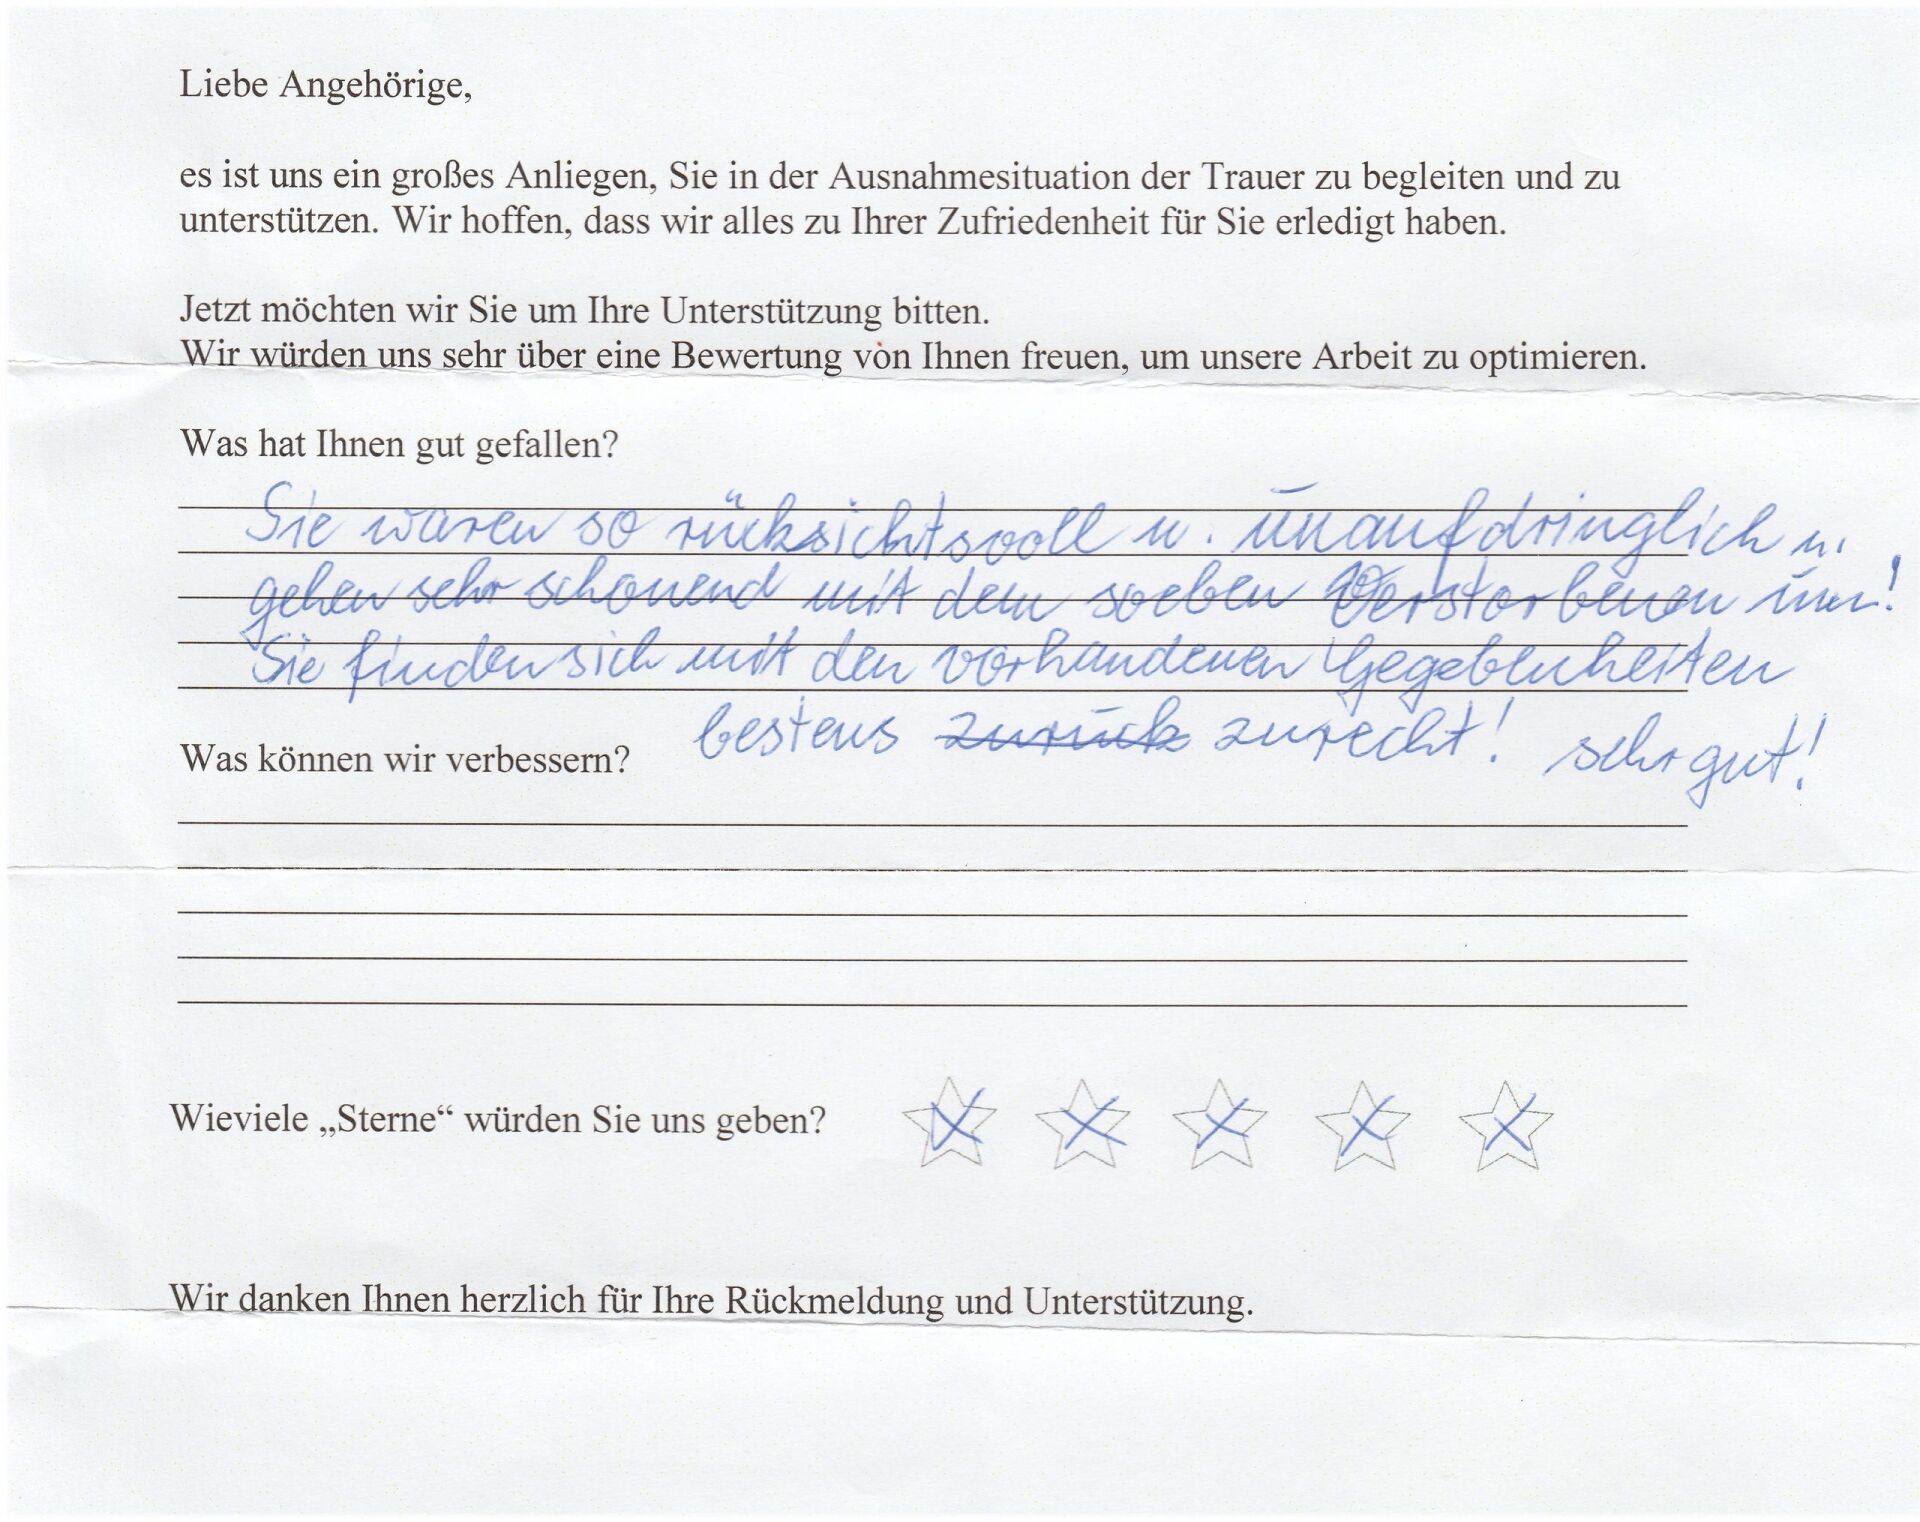 Liebe Angehörige,
es ist uns ein großes Anliegen, Sie in der Ausnahmesituation der Trauer zu begleiten und zu
unterstützen. Wir hoffen, dass wir alles zu Ihrer Zufriedenheit für Sie erledigt haben.
Jetzt möchten wir Sie um Ihre Unterstützung bitten.
Wir würden uns sehr über eine Bewertung von Ihnen freuen, um unsere Arbeit zu optimieren.
Was hat Ihnen gut gefallen?
Sie waren so rücksichtsvoll u. unaufdringlich u.
gehen sehr schonend mit dem soeben Verstorbenen um!
Sie finden sich mit den vorhandenen Gegebenheiten
bestens zurück zurecht! sehr gut!
Was können wir verbessern?
Wieviele „Sterne“ würden Sie uns geben?
Wir danken Ihnen herzlich für Ihre Rückmeldung und Unterstützung.